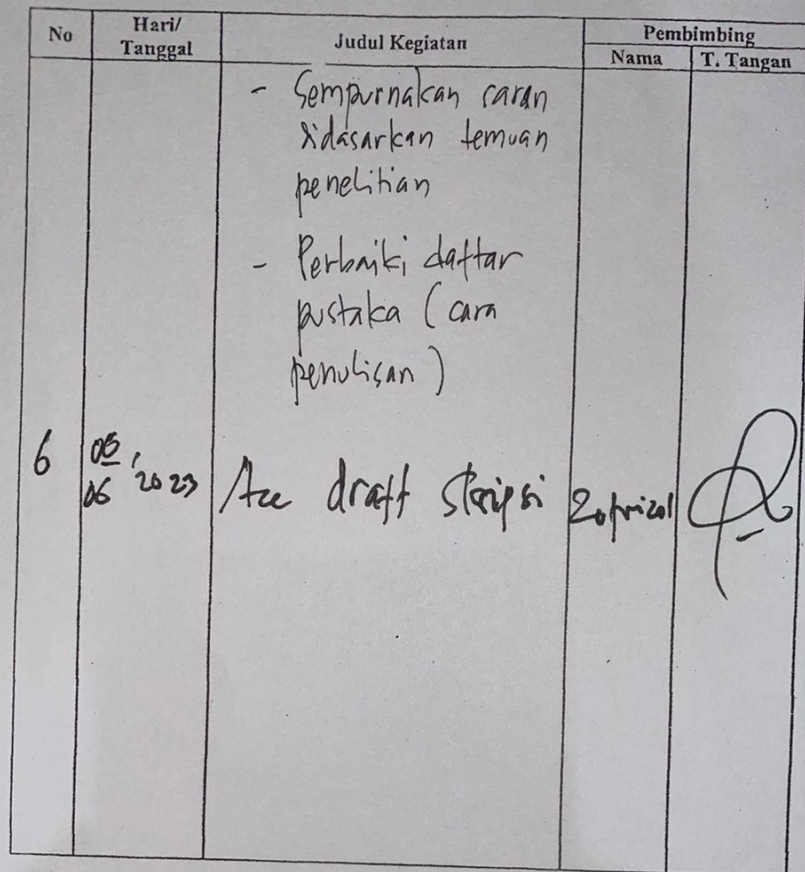 No
Hari/
Tanggal
Judul Kegiatan
Pembimbing
Nama
T. Tangan
- Sempurnakan saran
didasarkan temuan
penelitian
- Perbaiki daftar
pustaka (cara
penulisan)
6
06, 2023
Acc draft skripsi